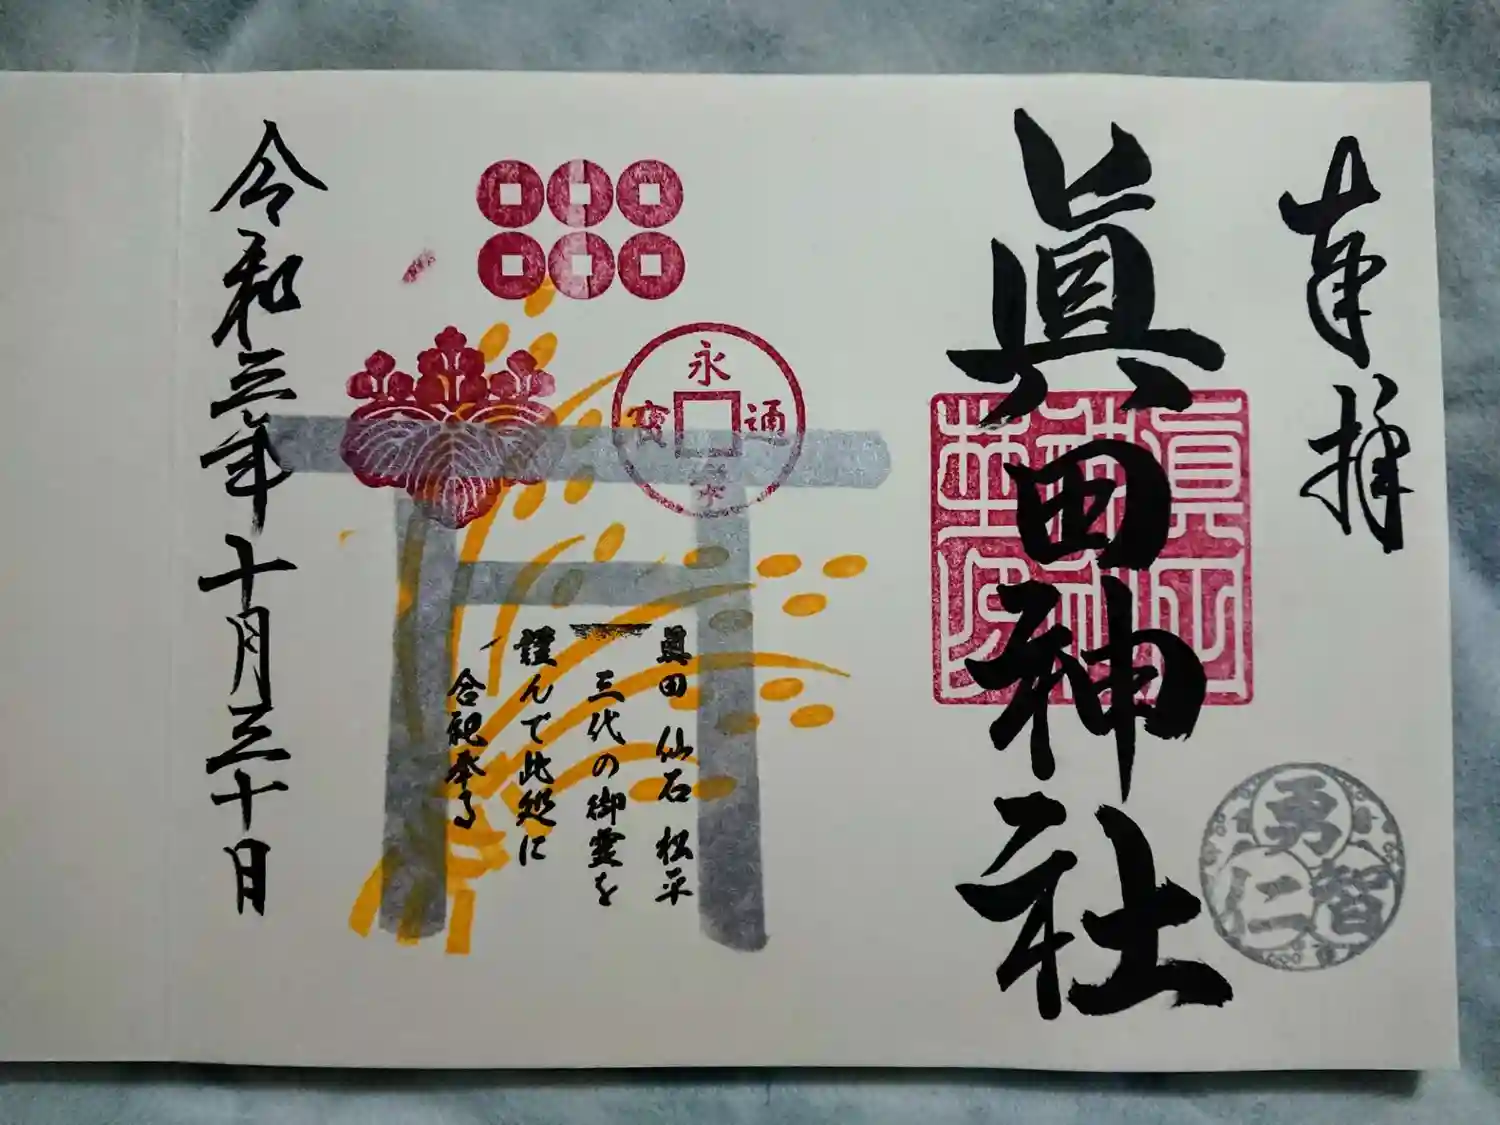 奉拝
眞田神社
眞田神社之印
勇
仁智
永
寳通
楽
眞田 仙石 松平
三代の御霊を
謹んで此処に
合祀奉る
令和三年十月三十日